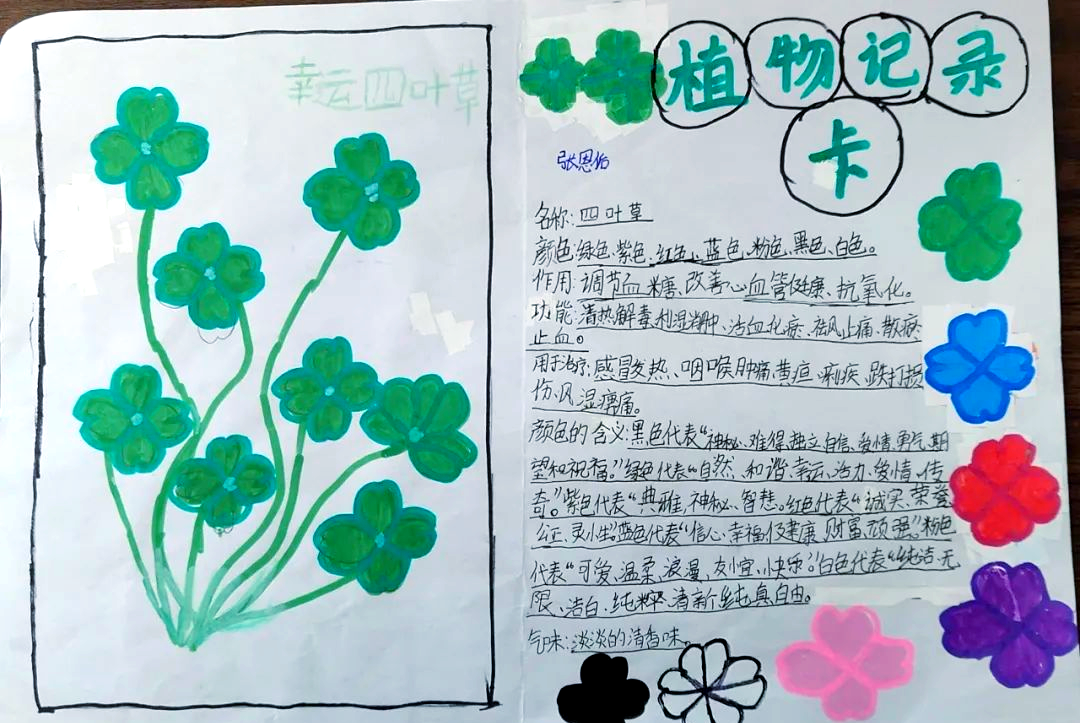 幸云四叶草
植物记录
卡
张恩佑
名称:四叶草
颜色:绿色、紫色、红色、蓝色、粉色、黑色、白色。
作用:调节血糖、改善心血管健康、抗氧化。
功能:清热解毒、利湿消肿、活血化瘀、祛风止痛、散瘀
止血。
用于治疗:感冒发热、咽喉肿痛、黄疸、痢疾、跌打损
伤、风湿痹痛。
颜色的含义:黑色代表“神秘、难得、独立、自信、爱情、勇气、期
望和祝福。”绿色代表“自然、和谐、幸云、活力、爱情、传
奇。”紫色代表“典雅、神秘、智慧。红色代表“诚实、荣誉
公正、灵小生”蓝色代表“信心、幸福、健康、财富、顽强。”粉色
代表“可爱、温柔、浪漫、友宜、快乐。”白色代表“纯洁、无
限、洁白、纯粹、清新、纯真、自由。
气味:淡淡的清香味。